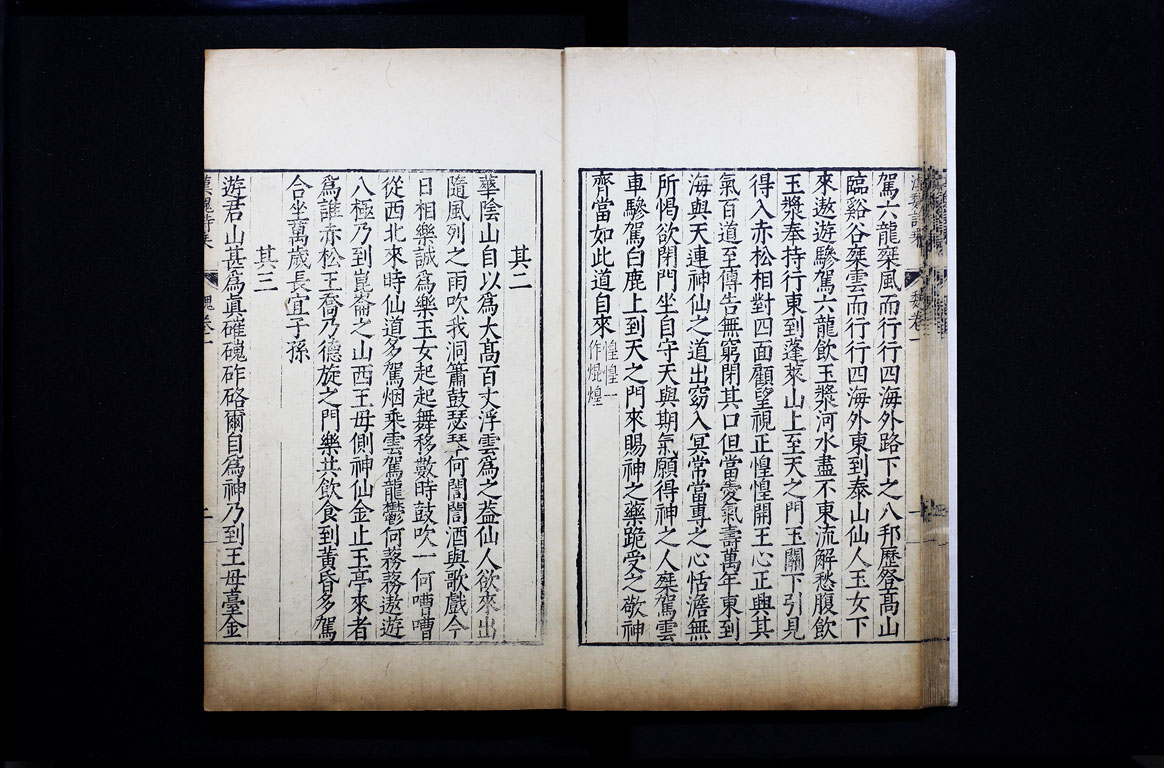 駕六龍椉風而行行四海外路下之八邦歷登髙山
臨谿谷椉雲而行行四海外東到泰山仙人玉女下
來遨遊驂駕六龍飲玉漿河水盡不東流解愁腹飲
玉漿奉持行東到蓬萊山上至天之門玉關下引見
得入赤松相對四面顧望視正惶惶開王心正興其
氣百道至傳告無窮閉其口但當愛氣壽萬年東到
海與天連神仙之道出窈入冥常當專之心恬澹無
所愒欲閉門坐自守天與期氣願得神之人椉駕雲
車驂駕白鹿上到天之門來賜神之藥跪受之敬神
齊當如此道自來
惶惶一
作焜煌
其二
華陰山自以爲大髙百丈浮雲爲之葢仙人欲來出
隨風列之雨吹我洞簫鼓瑟琴何誾誾酒與歌戲今
日相樂誠爲樂玉女起起舞移數時鼓吹一何嘈嘈
從西北來時仙道多駕烟乘雲駕龍鬱何蓩蓩遨遊
八極乃到崑崙之山西王母側神仙金止玉亭來者
爲誰赤松王喬乃德旋之門樂共飲食到黃昏多駕
合坐萬歲長宜子孫
其三
遊君山甚爲眞磪䃬砟硌爾自爲神乃到王母臺金
漢魏詩乘
魏卷一
二